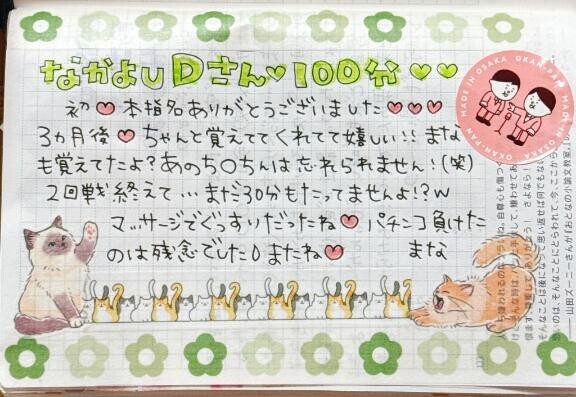 なかよしDさん♡100分♡♡
初♡本指名ありがとうございました♡♡♡
3ヵ月後♡ちゃんと覚えててくれてて嬉しい!!まな
も覚えてたよ?あのち○ちんは忘れられません!(笑)
2回戦終えて…まだ30分もたってませんよ!?w
マッサージでぐっすりだったね♡パチンコ負けた
のは残念でしたDまたね♡ まな
MADE IN OSAKA OKAN-PAN MADE IN OSAKA OKAN-PAN
そんなことは後になって思い返せば何でもない
――山田ズーニー『おとなの小論文教室。』